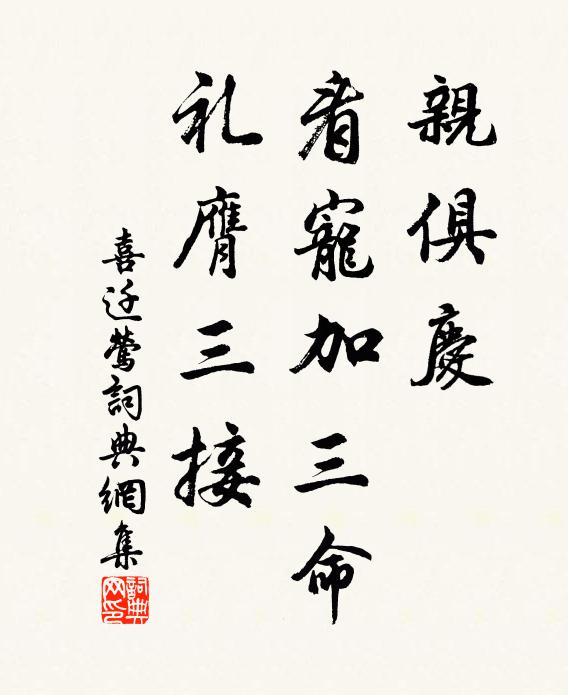 親俱慶
看寵加三命
礼膺三接
喜迁莺詞典網集
詞典网印